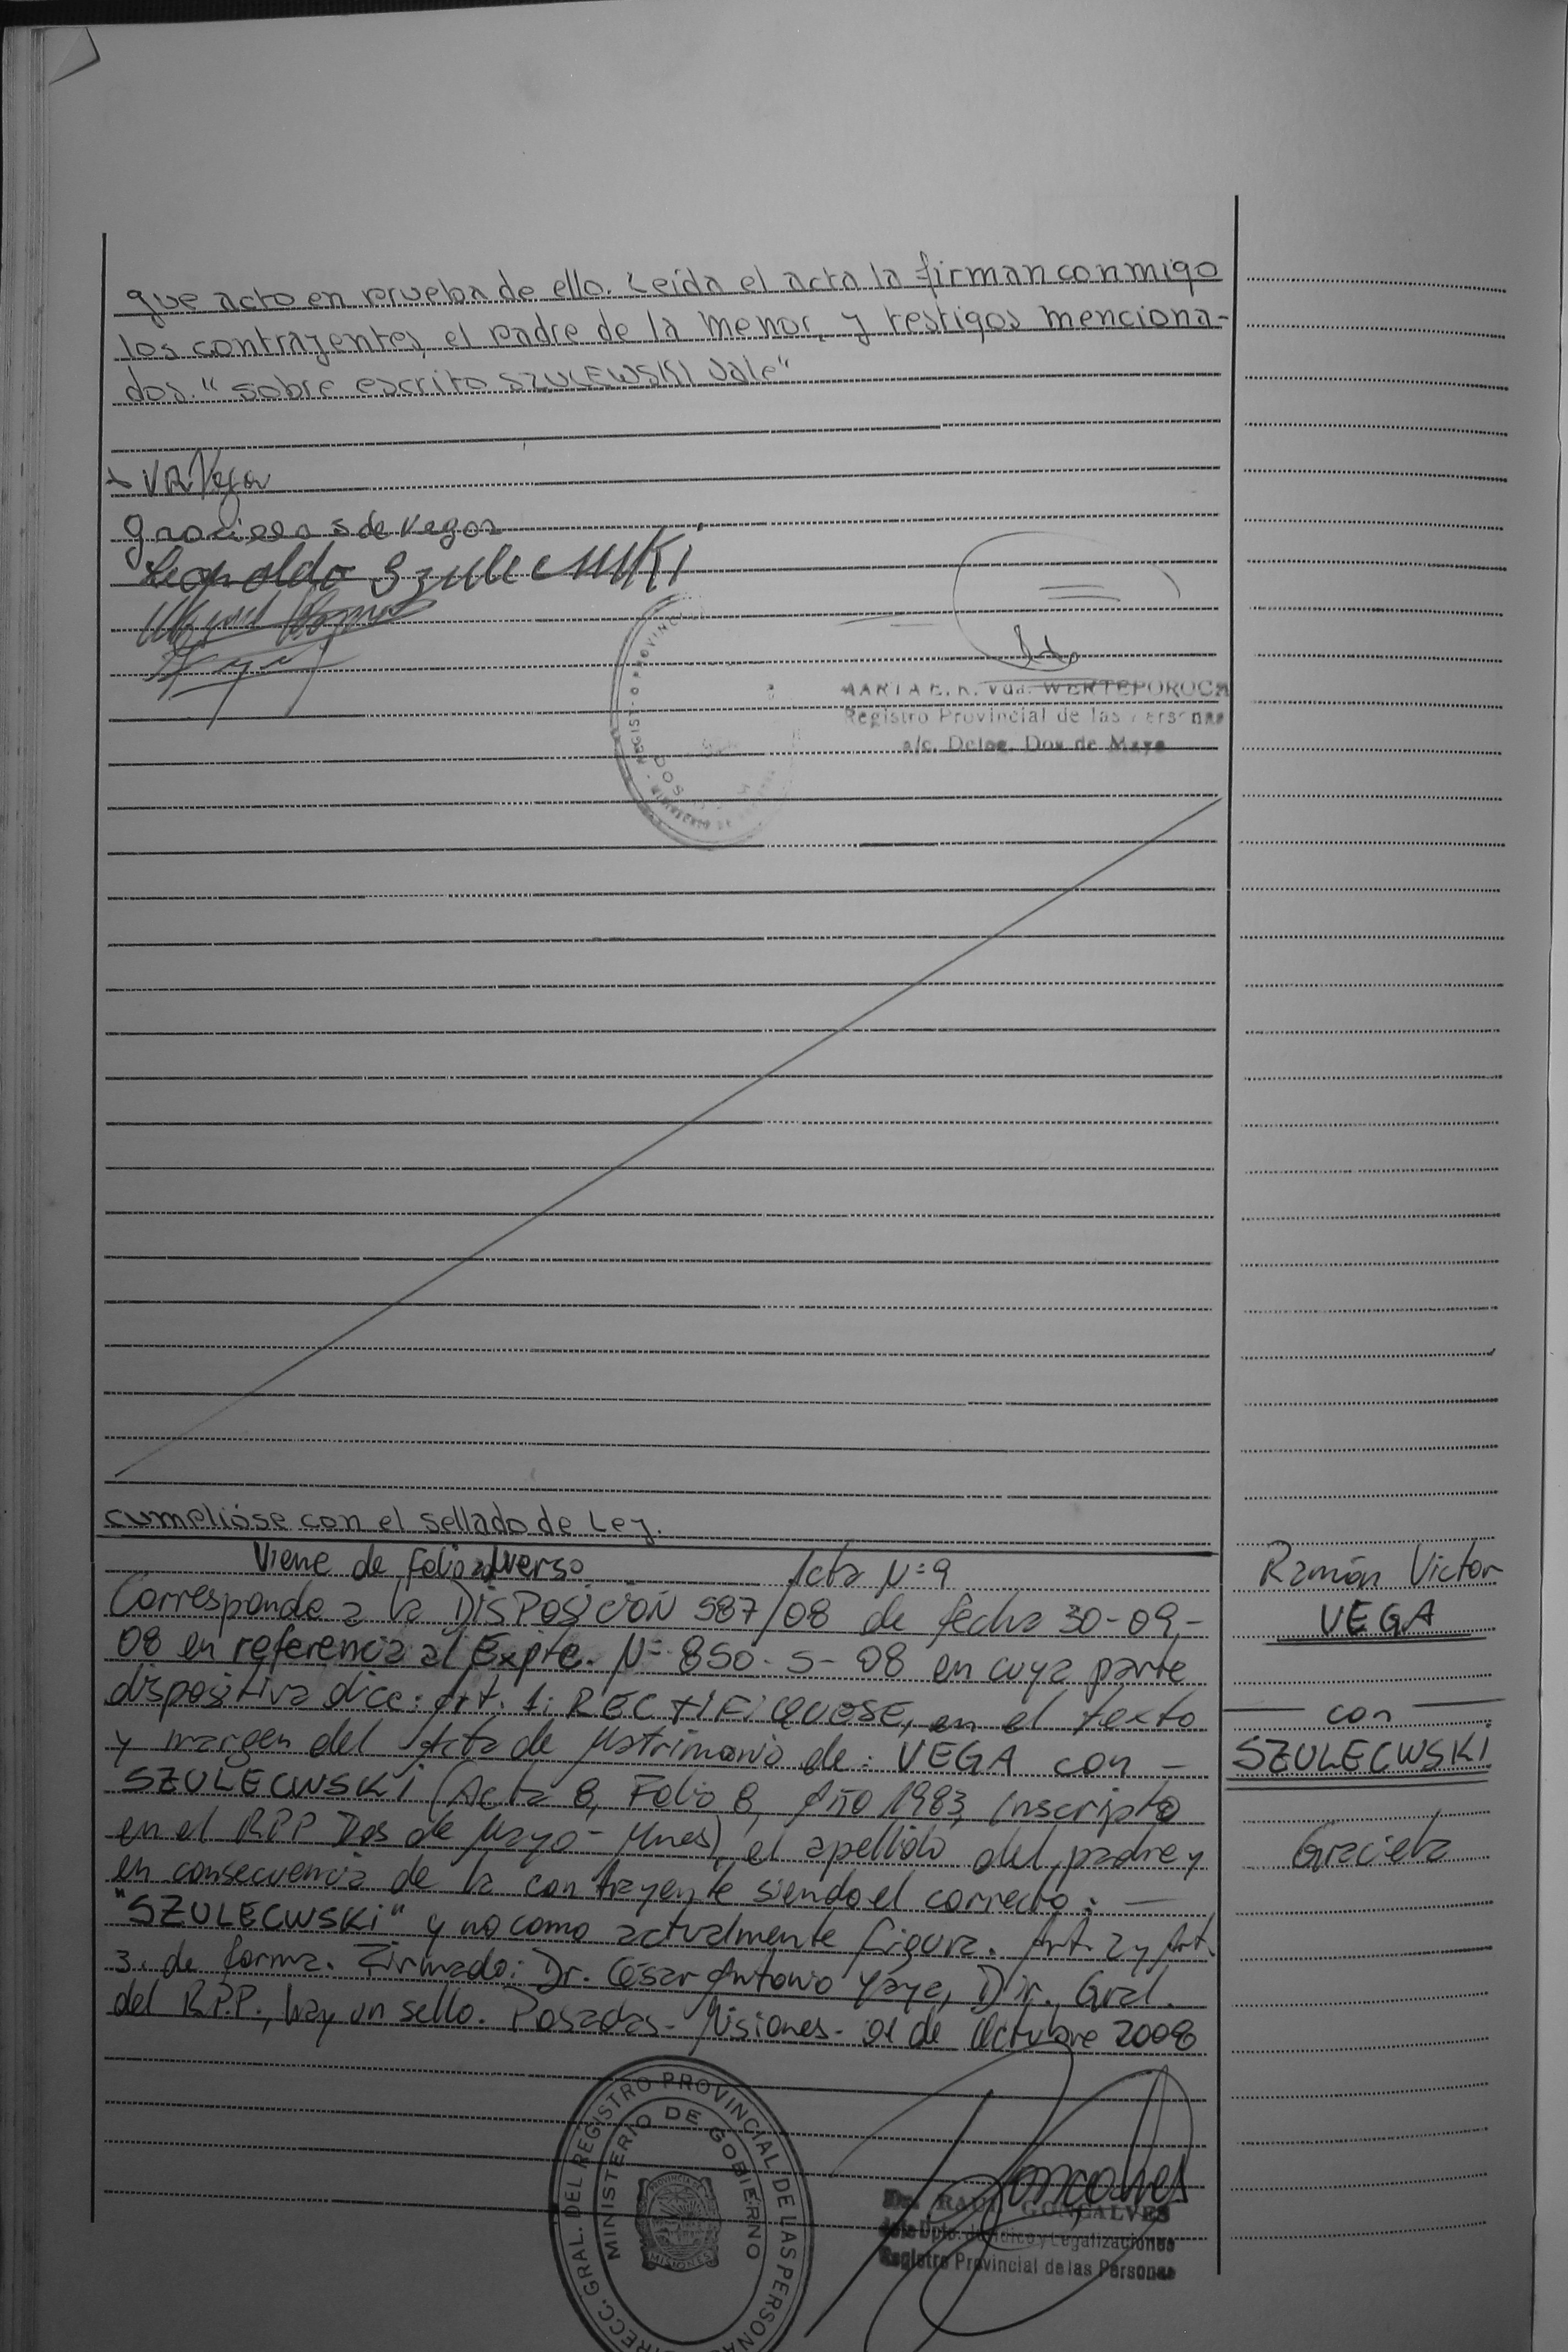 que acto en prueba de ello. Leída el acta la firman conmigo
los contrayentes, el padre de la menor, y testigos menciona-
dos. "sobre escrito SZULEWSKI Vale"
VR Vega
Graciela S de Vega
Leopoldo Szulecwski
REGISTRO PROVINCIAL
MARTA E. K. Vda. WERTEPOROCH
Registro Provincial de las Personas
a/c. Deleg. Dos de Mayo
cumplióse con el sellado de Ley.
Viene de folio adverso Acta N=9
Corresponde a la DISPOSICIÓN 587/08 de fecha 30-09-
08 en referencia al Expte. N= 850-S-08 en cuya parte
dispositiva dice: Art. 1: RECTIFIQUESE, en el texto
y margen del Acta de Matrimonio de: VEGA con -
SZULECWSKI (Acta 8, Folio 8, Año 1983, Inscripto
en el RPP Dos de Mayo - Mnes), el apellido del padre y
en consecuencia de la contrayente siendo el correcto: —
"SZULECWSKI" y no como actualmente figura. Art. 2 y Art.
3. de forma. Firmado: Dr. César Antonio Yaya, Dir. Gral.
del R.P.P., hay un sello. Posadas - Misiones - 01 de Octubre 2008
Ramón Victor
VEGA
— con —
SZULECWSKI
Graciela
DIRECC. GRAL. DEL REGISTRO PROVINCIAL DE LAS PERSONAS
MINISTERIO DE GOBIERNO
PROVINCIA DE
MISIONES
Goncalves
RAUL GONCALVES
Jefe Dpto. Jurídico y Legalizaciones
Registro Provincial de las Personas